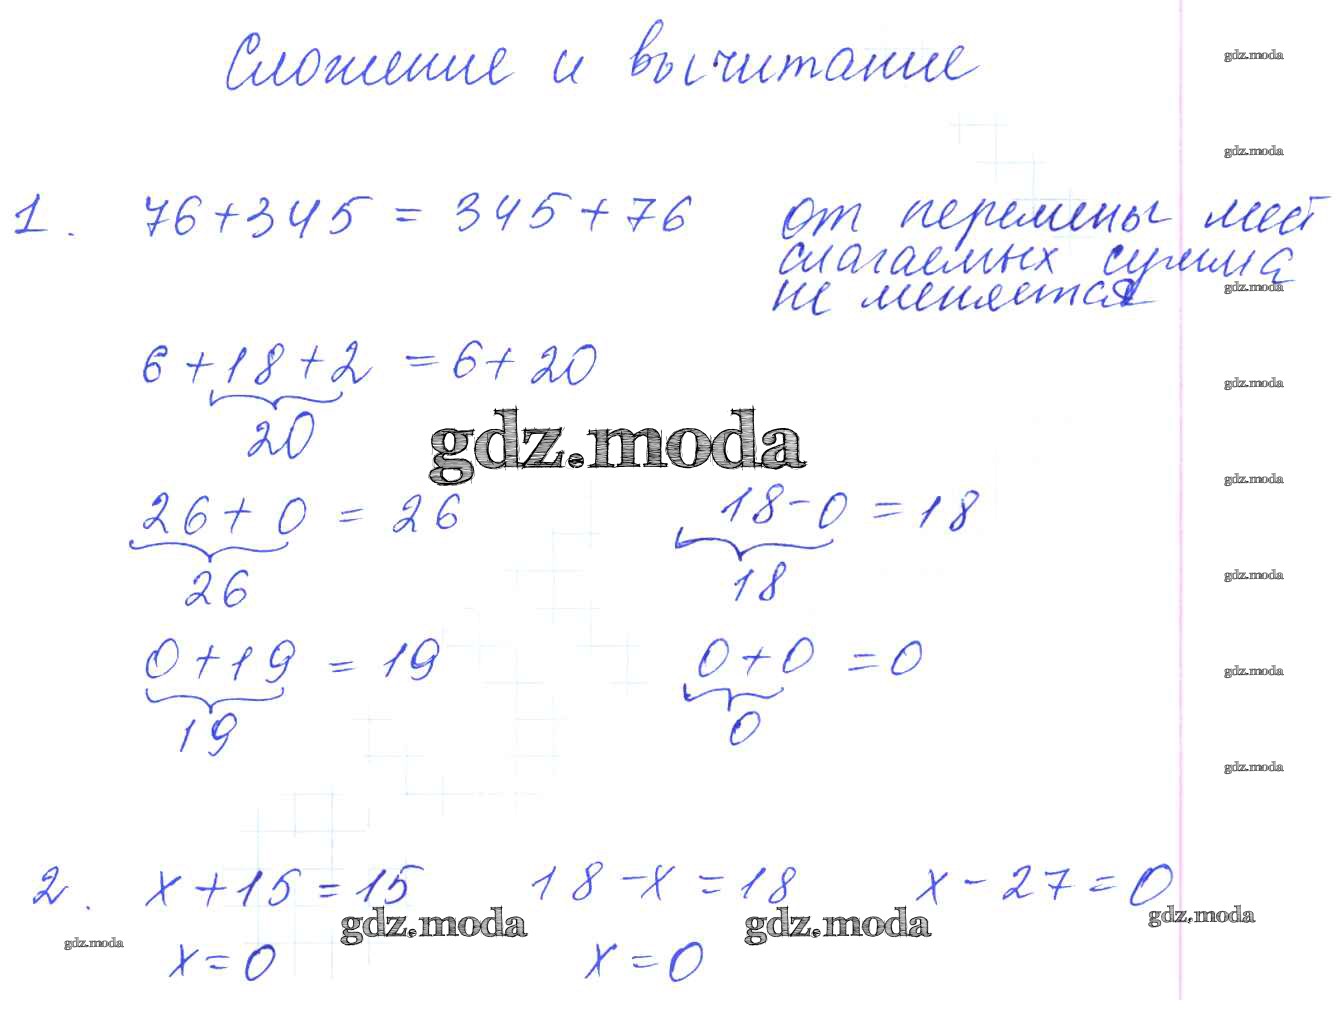 Сложение и вычитание
gdz.moda
gdz.moda
1. 76+345 = 345+76 от перемены мест
слагаемых сумма
не меняется
gdz.moda
6+18+2 = 6+20
gdz.moda
20
gdz.moda
gdz.moda
26+0 = 26 18-0 = 18
26 18
gdz.moda
0+19 = 19 0+0 = 0
gdz.moda
19 0
gdz.moda
2. x+15=15 18-x=18 x-27=0
gdz.moda gdz.moda gdz.moda
gdz.moda
x=0 x=0